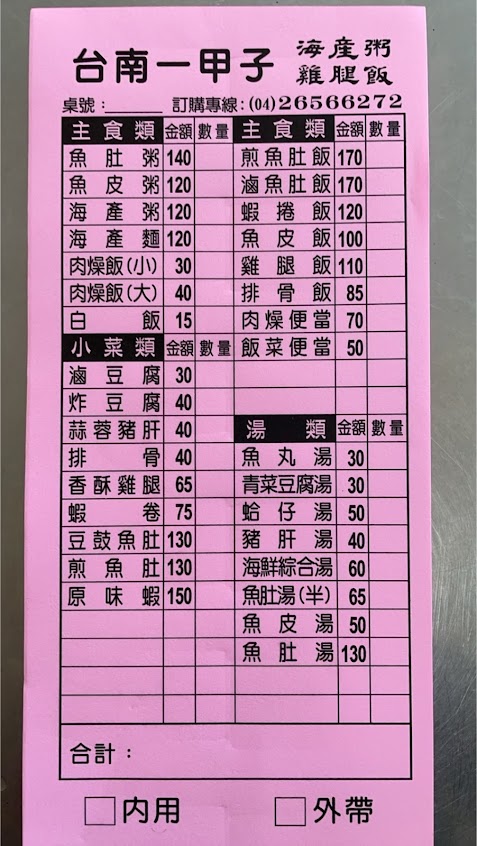 台南一甲子 海產粥
雞腿飯
桌號：______ 訂購專線：(04)26566272
主食類 金額 數量 主食類 金額 數量
魚肚粥 140 煎魚肚飯 170
魚皮粥 120 滷魚肚飯 170
海產粥 120 蝦捲飯 120
海產麵 120 魚皮飯 100
肉燥飯(小) 30 雞腿飯 110
肉燥飯(大) 40 排骨飯 85
白飯 15 肉燥便當 70
小菜類 金額 數量 飯菜便當 50
滷豆腐 30
炸豆腐 40
蒜蓉豬肝 40 湯類 金額 數量
排骨 40 魚丸湯 30
香酥雞腿 65 青菜豆腐湯 30
蝦卷 75 蛤仔湯 50
豆鼓魚肚 130 豬肝湯 40
煎魚肚 130 海鮮綜合湯 60
原味蝦 150 魚肚湯(半) 65
魚皮湯 50
魚肚湯 130
合計：
□內用 □外帶